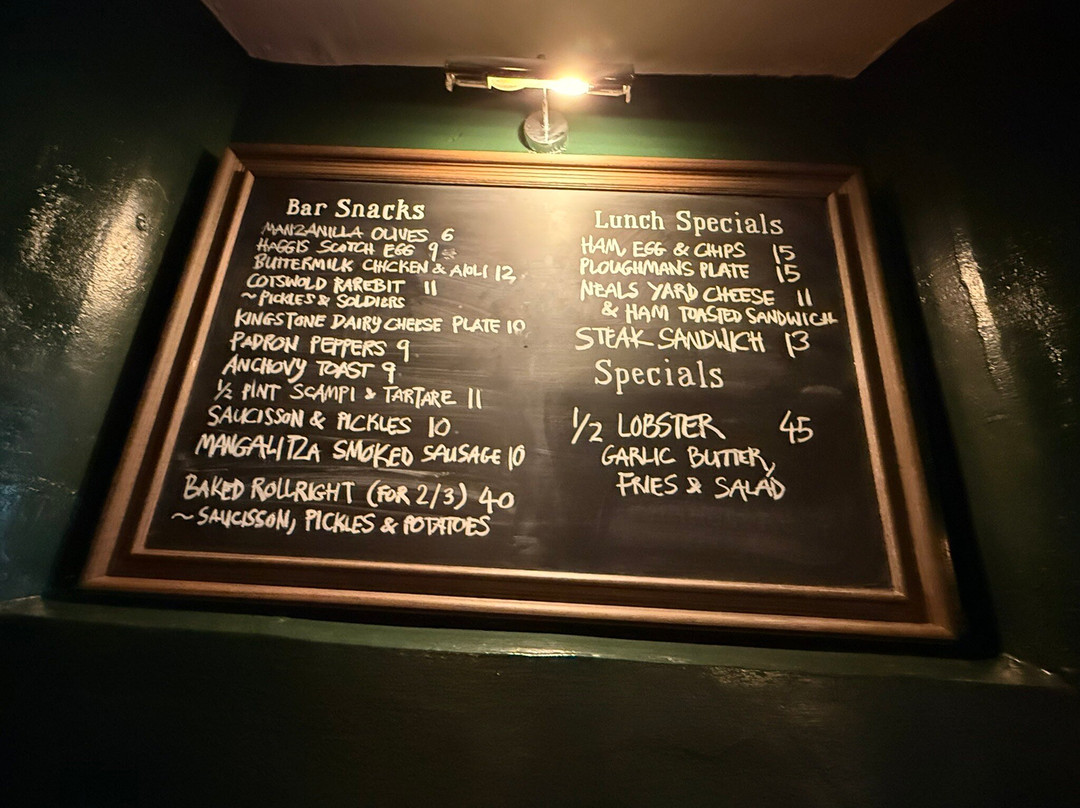 Bar Snacks
MANZANILLA OLIVES 6
HAGGIS SCOTCH EGG 9
BUTTERMILK CHICKEN & AIOLI 12
COTSWOLD RAREBIT 11
~ PICKLES & SOLDIERS
KINGSTONE DAIRY CHEESE PLATE 10
PADRON PEPPERS 9
ANCHOVY TOAST 9
1/2 PINT SCAMPI & TARTARE 11
SAUCISSON & PICKLES 10
MANGALITZA SMOKED SAUSAGE 10
BAKED ROLLRIGHT (FOR 2/3) 40
~ SAUCISSON, PICKLES & POTATOES
Lunch Specials
HAM, EGG & CHIPS 15
PLOUGHMANS PLATE 15
NEALS YARD CHEESE 11
& HAM TOASTED SANDWICH
STEAK SANDWICH 13
Specials
1/2 LOBSTER 45
GARLIC BUTTER,
FRIES & SALAD